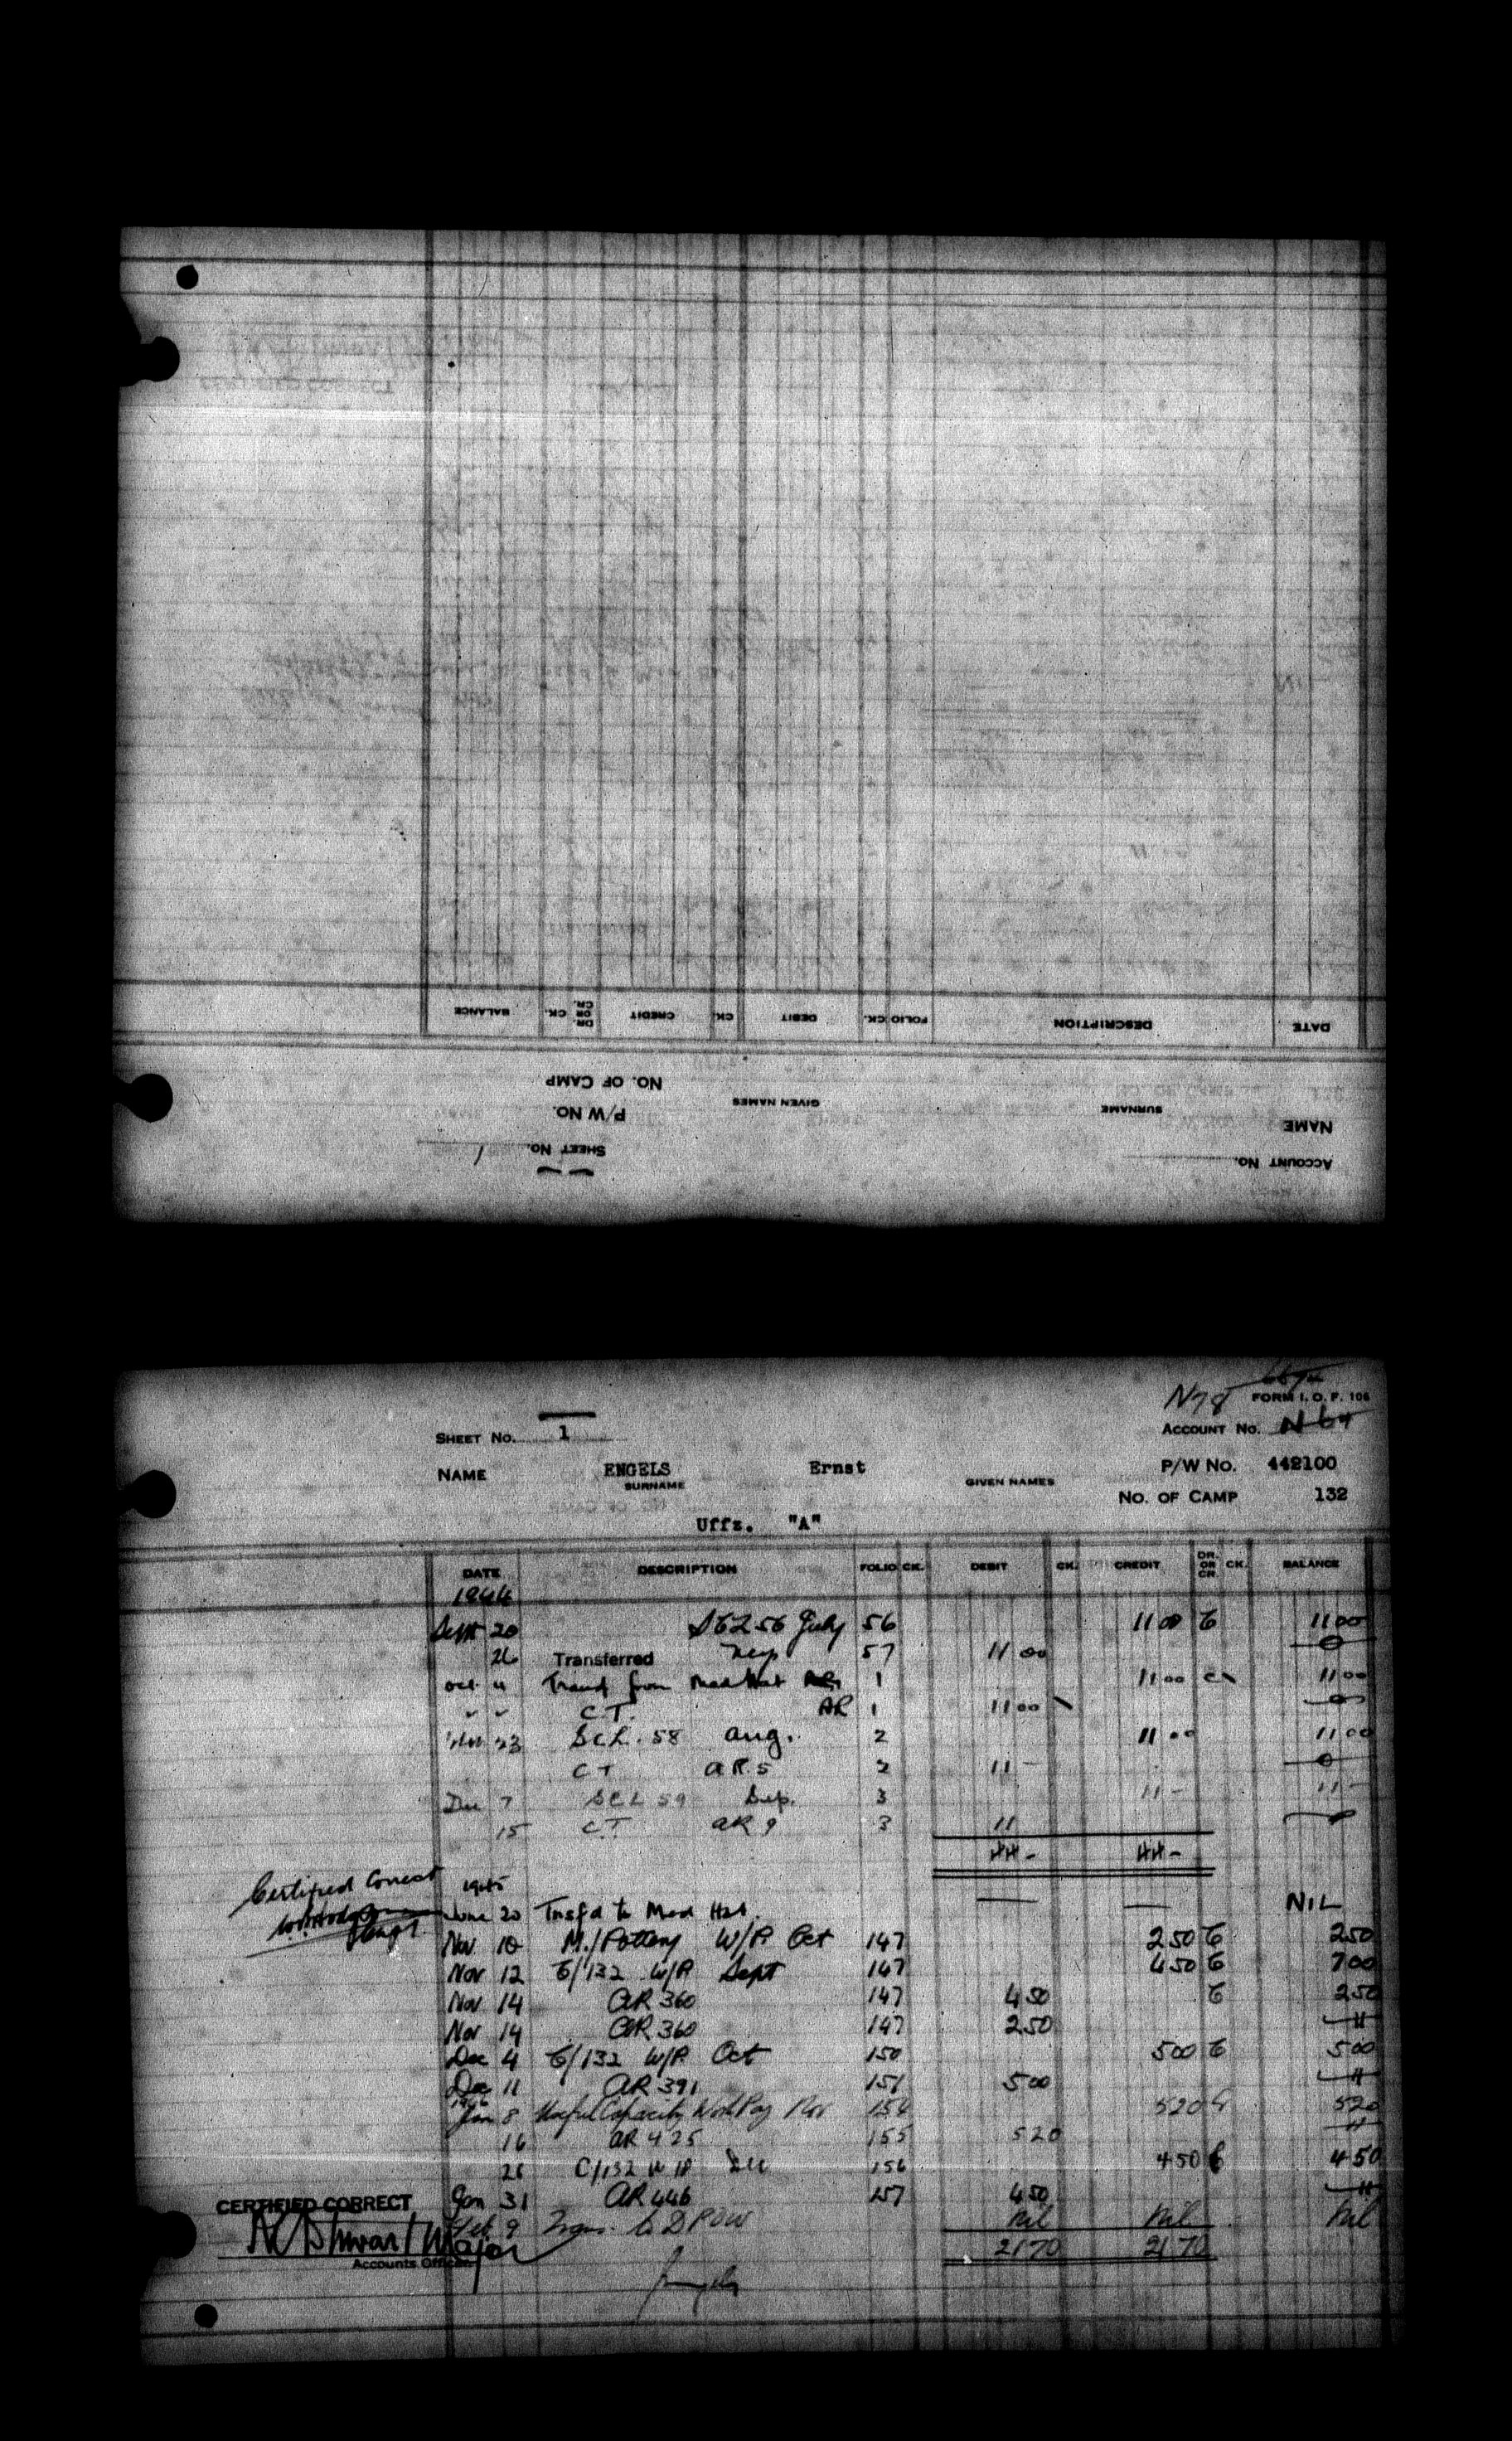 BALANCE DR. OR CR. CK. CREDIT CK. DEBIT CK. FOLIO DESCRIPTION DATE
NO. OF CAMP
P/W NO. GIVEN NAMES SURNAME NAME
SHEET NO. ACCOUNT NO.
N78 FORM I.O.F. 106
SHEET NO. 1 ACCOUNT NO. N 64
NAME ENGELS Ernst P/W NO. 442100
SURNAME GIVEN NAMES
NO. OF CAMP 132
Uffz. "A"
DATE DESCRIPTION FOLIO CK. DEBIT CK. CREDIT DR. OR CR. CK. BALANCE
1944
Sept 20 July 56 11 00 11 00
26 Transferred 57 11 00 0
Oct 4 Transf from Med Hat 1 11 00 11 00
" " C.T. AR 1 11 00
23 SCL. 58 Aug. 2 11 00 11 00
CT AR 5 2 11 - 0
Dec 7 SCL 59 Sep. 3 11 - 11 -
15 CT AR 9 3 11
44 - 44 -
Certified Correct
1945
June 20 Tnsfd to Med Hat. — — NIL
Nov 10 M./Pottery W/P Oct 147 2 50 2 50
Nov 12 C/132 W/P Sept 147 4 50 7 00
Nov 14 AR 360 147 4 50 2 50
Nov 14 AR 360 147 2 50
Dec 4 C/132 W/P Oct 150 5 00 5 00
Dec 11 AR 391 151 5 00
1946
Jan 8 Useful Capacity Work Pay Nov 154 5 20 5 20
16 AR 425 155 5 20
C/132 W P 156 4 50 4 50
CERTIFIED CORRECT Jan 31 AR 446 157 4 50
Feb 9 Trans. to DPOW Nil Nil Nil
Major 21 70 21 70
Accounts Officer